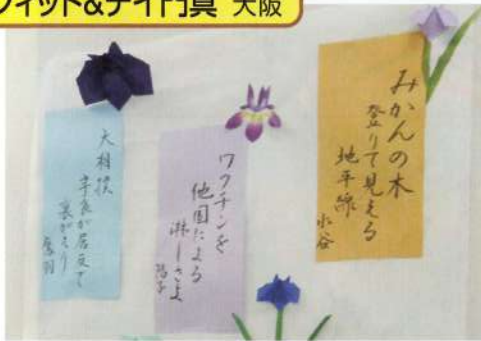 フィット&デイ門真 大阪
みかんの木
登りて見える
地平線
小谷
ワクチンを
他国による
淋しさよ
大相撲
宇良が居反て